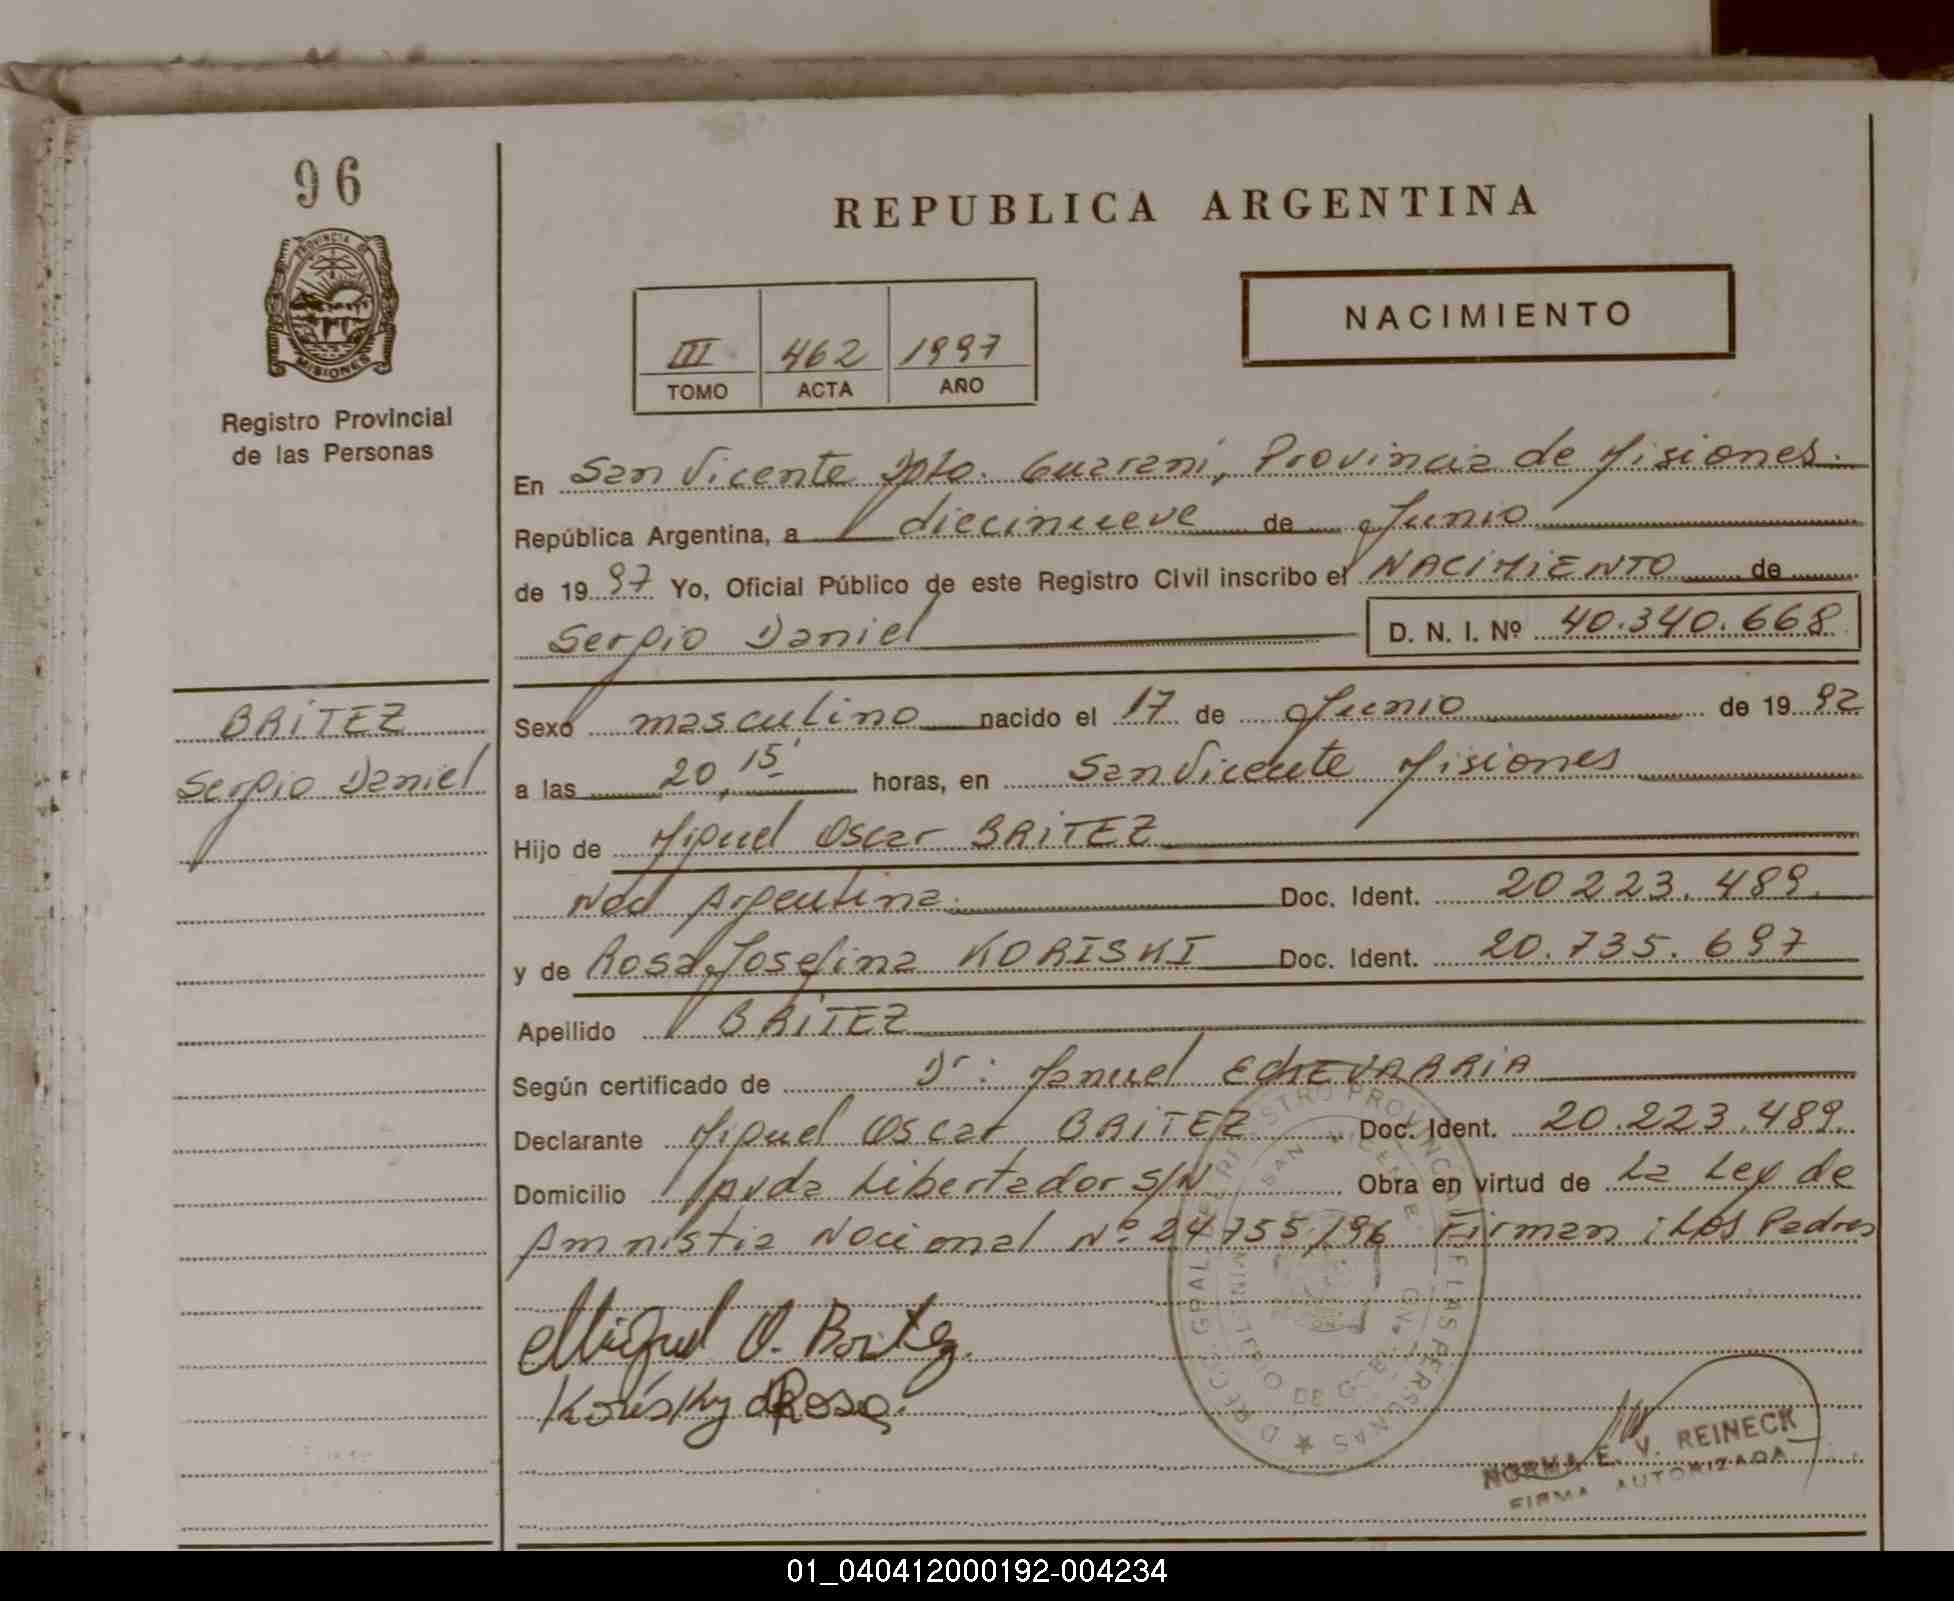 96
PROVINCIA DE
MISIONES
Registro Provincial
de las Personas
REPUBLICA ARGENTINA
NACIMIENTO
III 462 1997
TOMO ACTA AÑO
En San Vicente Dpto. Guarani, Provincia de Misiones.
República Argentina, a diecinueve de Junio
de 1997 Yo, Oficial Público de este Registro Civil inscribo el NACIMIENTO de
Sergio Daniel D. N. I. Nº 40.340.668
BRITEZ
Sergio Daniel
Sexo masculino nacido el 17 de Junio de 1992
a las 20,15 horas, en San Vicente Misiones
Hijo de Miguel Oscar BRITEZ
Nac Argentina. Doc. Ident. 20223.489.
y de Rosa Josefina KORISKI Doc. Ident. 20.735.697
Apellido BRITEZ
Según certificado de Dr: Manuel ECHEVARRIA
Declarante Miguel Oscar BRITEZ Doc. Ident. 20.223.489.
Domicilio Avda Libertador S/N Obra en virtud de La Ley de
Amnistia Nacional Nº 24755/96 Firman: Los Padres
Miguel O. Britez.
Korisky Rosa.
NORMA E. V. REINECK
FIRMA AUTORIZADA
01_040412000192-004234